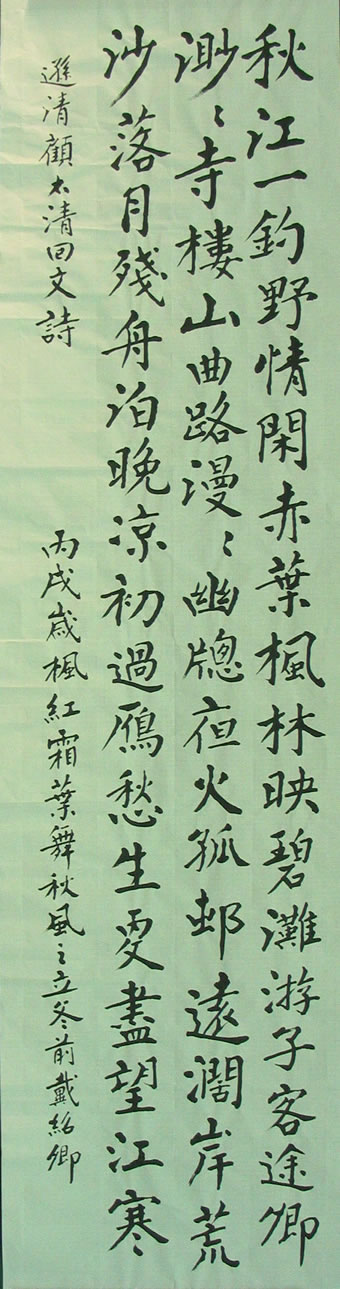 秋江一鈎野情閑赤葉楓林映碧灘游子客途卿
渺〻寺樓山曲路漫〻幽牕夜火孤邨遠濶岸荒
沙落月殘舟泊晚凉初過鴈愁生更盡望江寒
遜清顧太清回文詩
丙戌歲楓紅霜葉舞秋風之立冬前戴紹卿